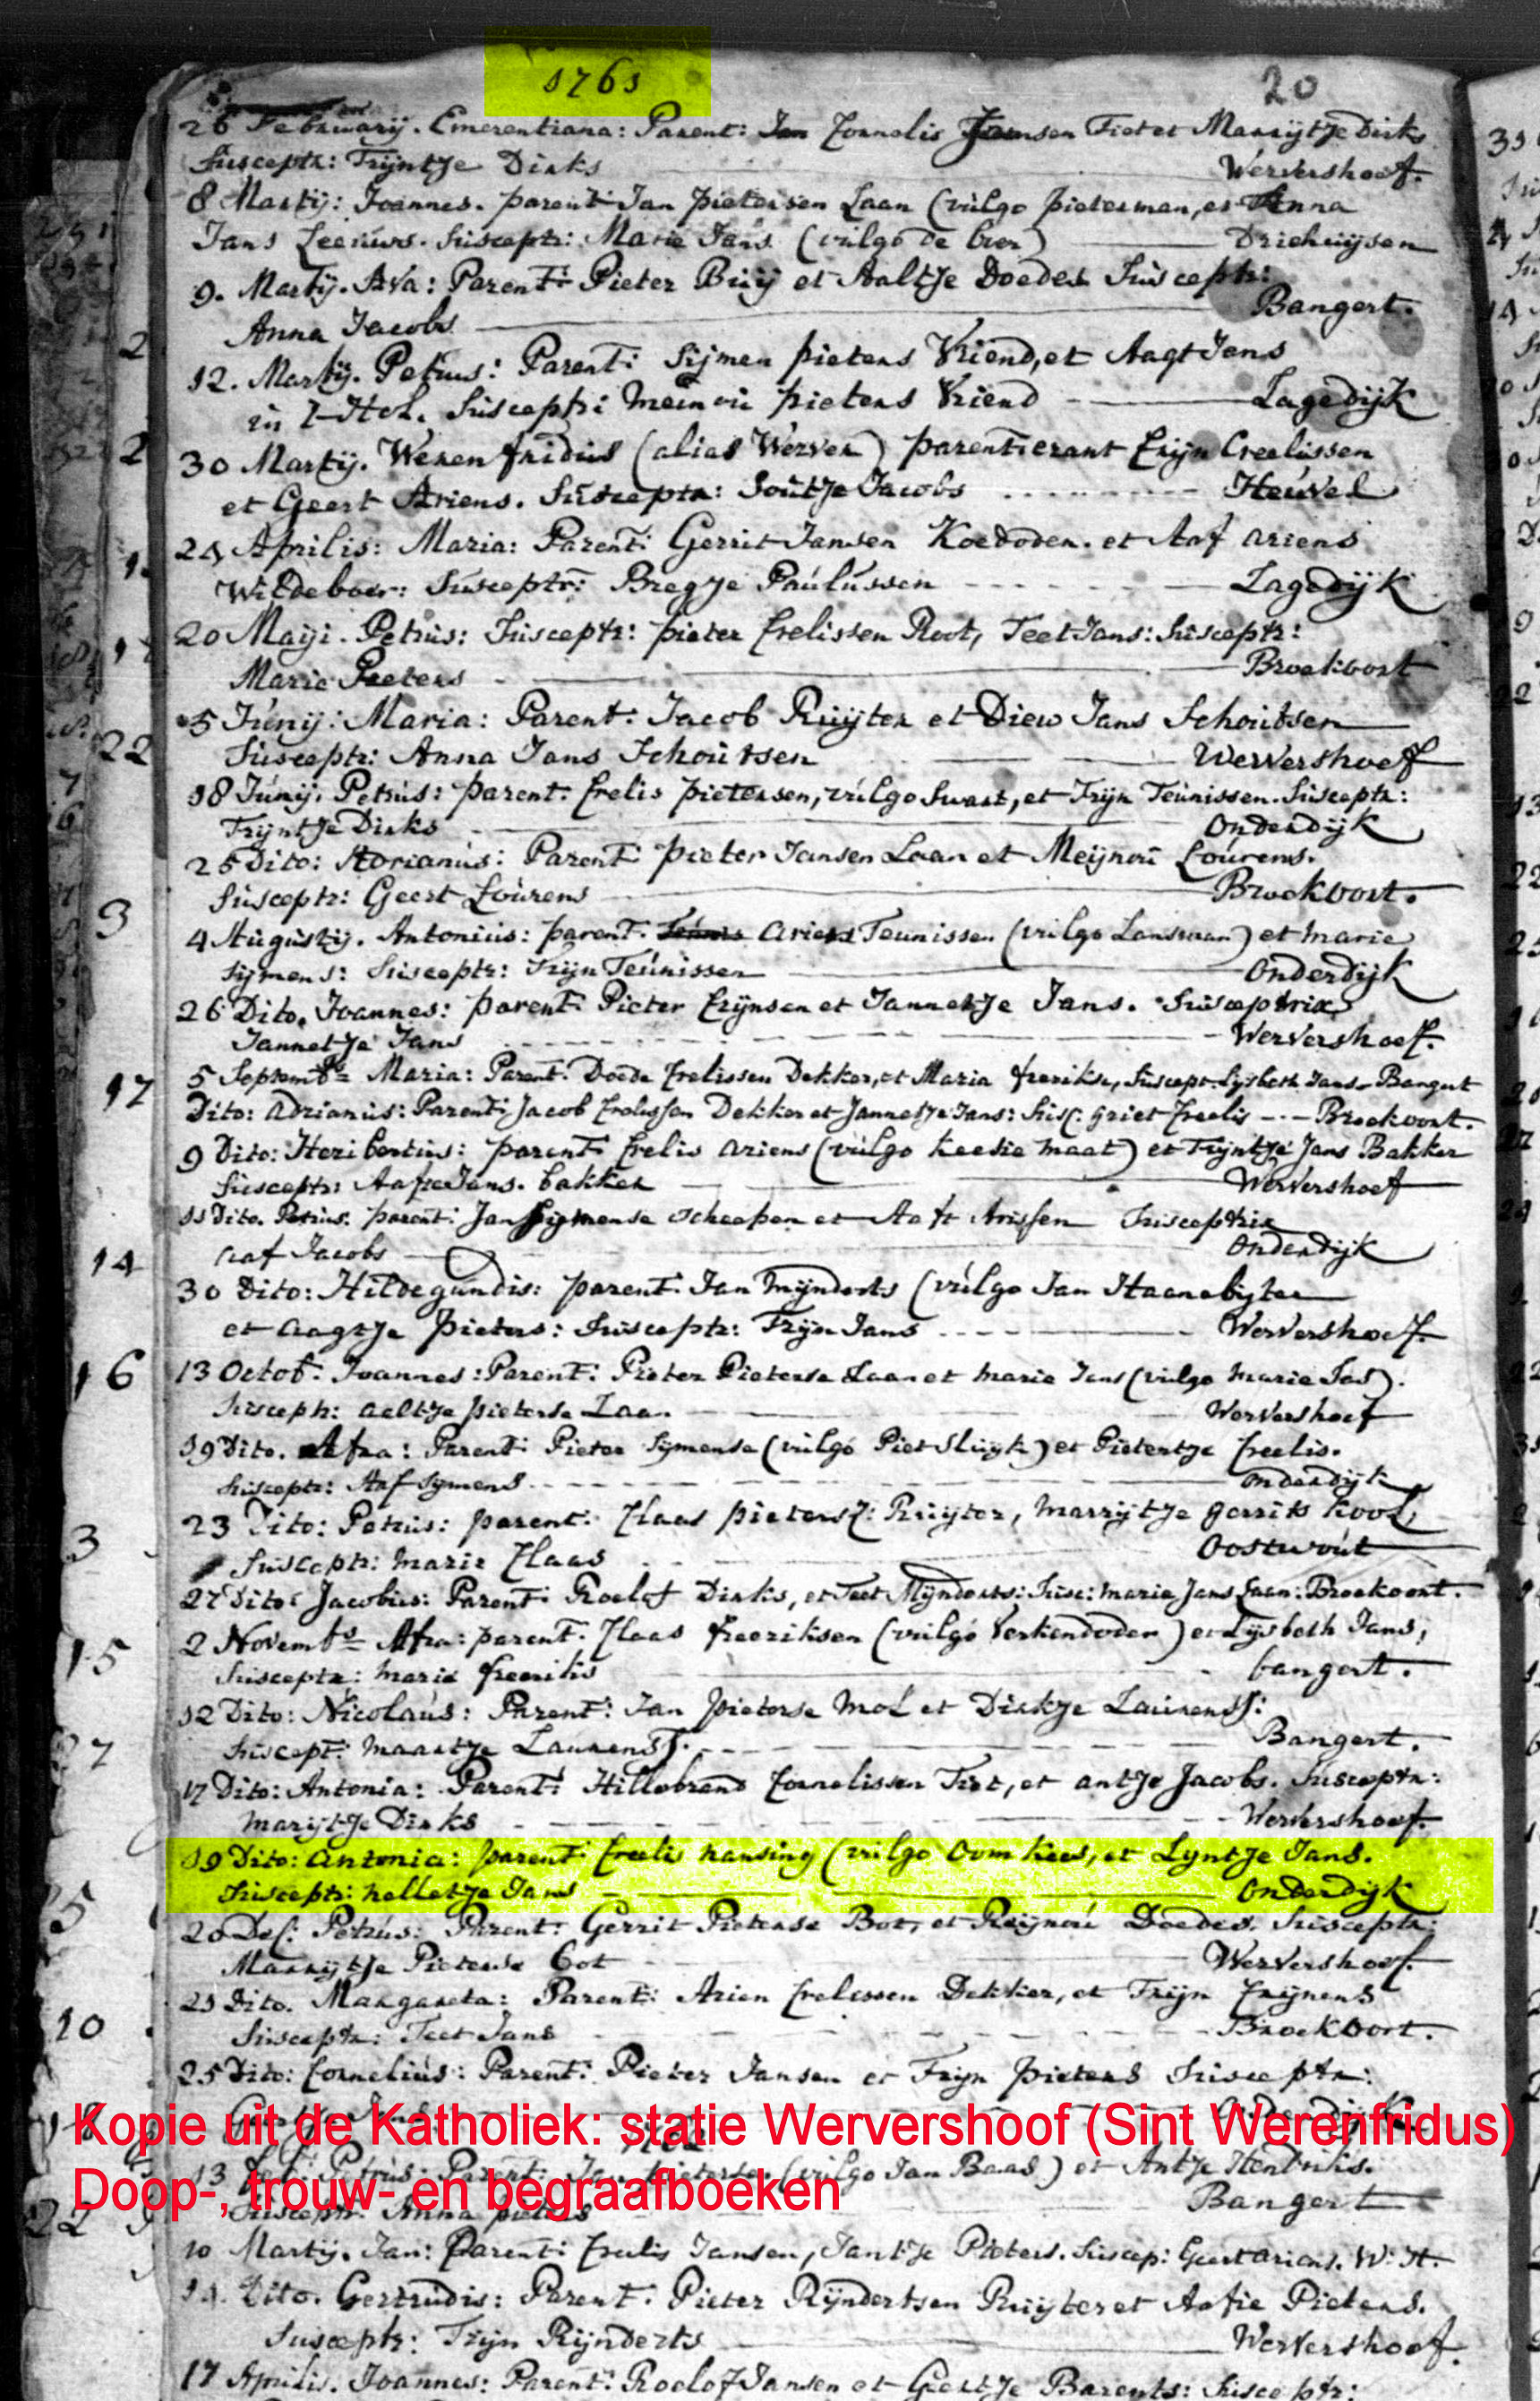 1761
20
26 February. Emerentiana: Parent: Cornelis Jansen Tiet et Marrijtje Dirks
Susceptr: Trijntje Dirks Wervershoef.
8 Martij: Joannes. parent: Jan pietersen Laan (vulgo pieterman, et Anna
Jans Leeuws. Susceptr: Marie Jans (vulgo de boer) Driehuijsen
9. Martij. Ava: Parent: Pieter Buij et Aaltje Doedes Susceptr:
Anna Jacobs Bangert.
12. Martij. Petrus: Parent: Sijmen pieters Vriend, et Aagt Jans
in 't Hol. Susceptr: Meinou pieters Vriend Lagedijk
30 Martij. Werenfridus (alias Werver) parent erant Crijn Creelissen
et Geert Ariens. Susceptr: Soutje Jacobs Heuvel
24 Aprilis: Maria: Parent: Gerrit Jansen Koedooder. et Aaf ariens
Wildeboer: Susceptr: Bregje Paulussen Lagedijk
20 Maiji. Petrus: Susceptr: pieter Crelissen Root, Teet Jans: Susceptr:
Marie Peeters Broekoort
5 Junij: Maria: Parent: Jacob Ruijter et Diew Jans Schoutsen
Susceptr: Anna Jans Schoutsen Wervershoef
18 Junij. Petrus: parent: Crelis pietersen, vulgo Swart, et Trijn Teunissen. Susceptr:
Trijntje Dirks Onderdijk
25 Dito: Adrianus: Parent: pieter Jansen Laan et Meijnou Lourens.
Susceptr: Geert Lourens Broekoort.
4 Augustij. Antonius: parent: Ariens Teunissen (vulgo Lansman) et marie
Sijmens: Susceptr: Trijn Teunissen Onderdijk
26 Dito. Joannes: parent: Pieter Crijnsen et Jannetje Jans. Susceptrix
Jannetje Jans Wervershoef.
5 Septemb: Maria: Parent: Doede Crelissen Dekker, et Maria freriks, Suscept: Lijsbeth Jans Bangert
Dito: Adrianus: Parent: Jacob Crelissen Dekker et Jannetje Jans: Susc: Griet Creelis Broekoort.
9 Dito: Heribertus: parent: Crelis Ariens (vulgo Keesie maat) et Trijntje Jans Bakker
Susceptr: Aafje Jans. bakker Wervershoef
11 Dito. Petrus. parent: Jan Sijmense Scheepen et Aaft Arissen Susceptrix
Aaf Jacobs Onderdijk
30 Dito: Hildegundis: parent: Jan Mijnderts (vulgo Jan Haanebijter
et Aagtje pieters: Susceptr: Trijn Jans Wervershoef.
13 Octob: Joannes: Parent: Pieter Pieterse Laan et marie Jans (vulgo marie Jas).
Susceptr: Aeltje pieterse Laa. Wervershoef
19 Dito. Afra: Parent: Pieter Sijmense (vulgo Piet Sluijk) et Pietertje Creelis.
Susceptr: Aaf Sijmens Onderdijk
23 Dito: Petrus: parent: Claas pietersz: Ruijter, Marrijtje Gerrits Kool,
Susceptr: marie Claas Oostwout
27 Dito: Jacobus: Parent: Roelof Dirks, et Teet Mijnderts: Susc: maria Jans Laan: Broekoort.
2 Novemb: Afra: parent: Claas freeriksen (vulgo Verkendoder) et Lijsbeth Jans,
Susceptr: maria freeriks bangert.
12 Dito: Nicolaus: Parent: Jan pieterse Mol et Dirkje Laurenss:
Suscept: maartje Laurenss. Bangert.
17 Dito: Antonia: Parent: Hillebrand Cornelissen Tiet, et antje Jacobs. Susceptr:
Marijtje Dirks Wervershoef.
19 Dito: Antonia: parent: Creelis Hansing (vulgo Oom Kees, et Lijntje Jans.
Susceptr: nelletje Jans Onderdijk
20 Dec: Petrus: Parent: Gerrit Pieterse Bot, et Reijnou Doedes. Susceptr:
Marrijtje Pieterse Bot Wervershoef.
21 Dito. Margareta: Parent: Arien Crelissen Dekker, et Trijn Crijnens
Susceptr: Teet Jans Broekoort.
25 Dito: Cornelius: Parent: Pieter Jansen et Trijn pieters Susceptr:
Onderdijk
Kopie uit de Katholiek: statie Wervershoof (Sint Werenfridus)
13 Petrus: Parent: Jan pieterse (vulgo Jan Baas) et Antje Hendriks.
Doop-, trouw- en begraafboeken
Susceptr: Anna pieters Bangert
10 Martij. Jan: Parent: Creelis Jansen, Jantje Pieters. Suscep: Geert Ariens. W: H.
14 Dito. Gertrudis: Parent: Pieter Rijndertsen Ruijter et Aafie Pieters.
Susceptr: Trijn Rijnderts Wervershoef.
17 Aprilis. Joannes: Parent: Roelof Jansen et Geertje Barents: Susceptr: